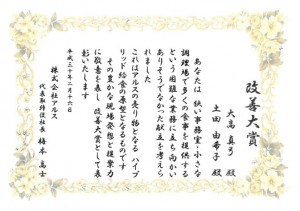 改善大賞
大高 真弓 殿
土田 由希子 殿
あなたは 狭い事務室・小さな
調理場で多くの食事を提供する
という困難な業務に立ち向かい
ありそうでなかった献立を考えら
れました
これはアルスの売り物となる ハイブ
リッド給食の原型となるものです
その豊かな現場発想と提案力
に敬意を表し 改善大賞として表
彰いたします
平成三十年二月十六日
株式会社アルス
代表取締役社長 梅本 高士